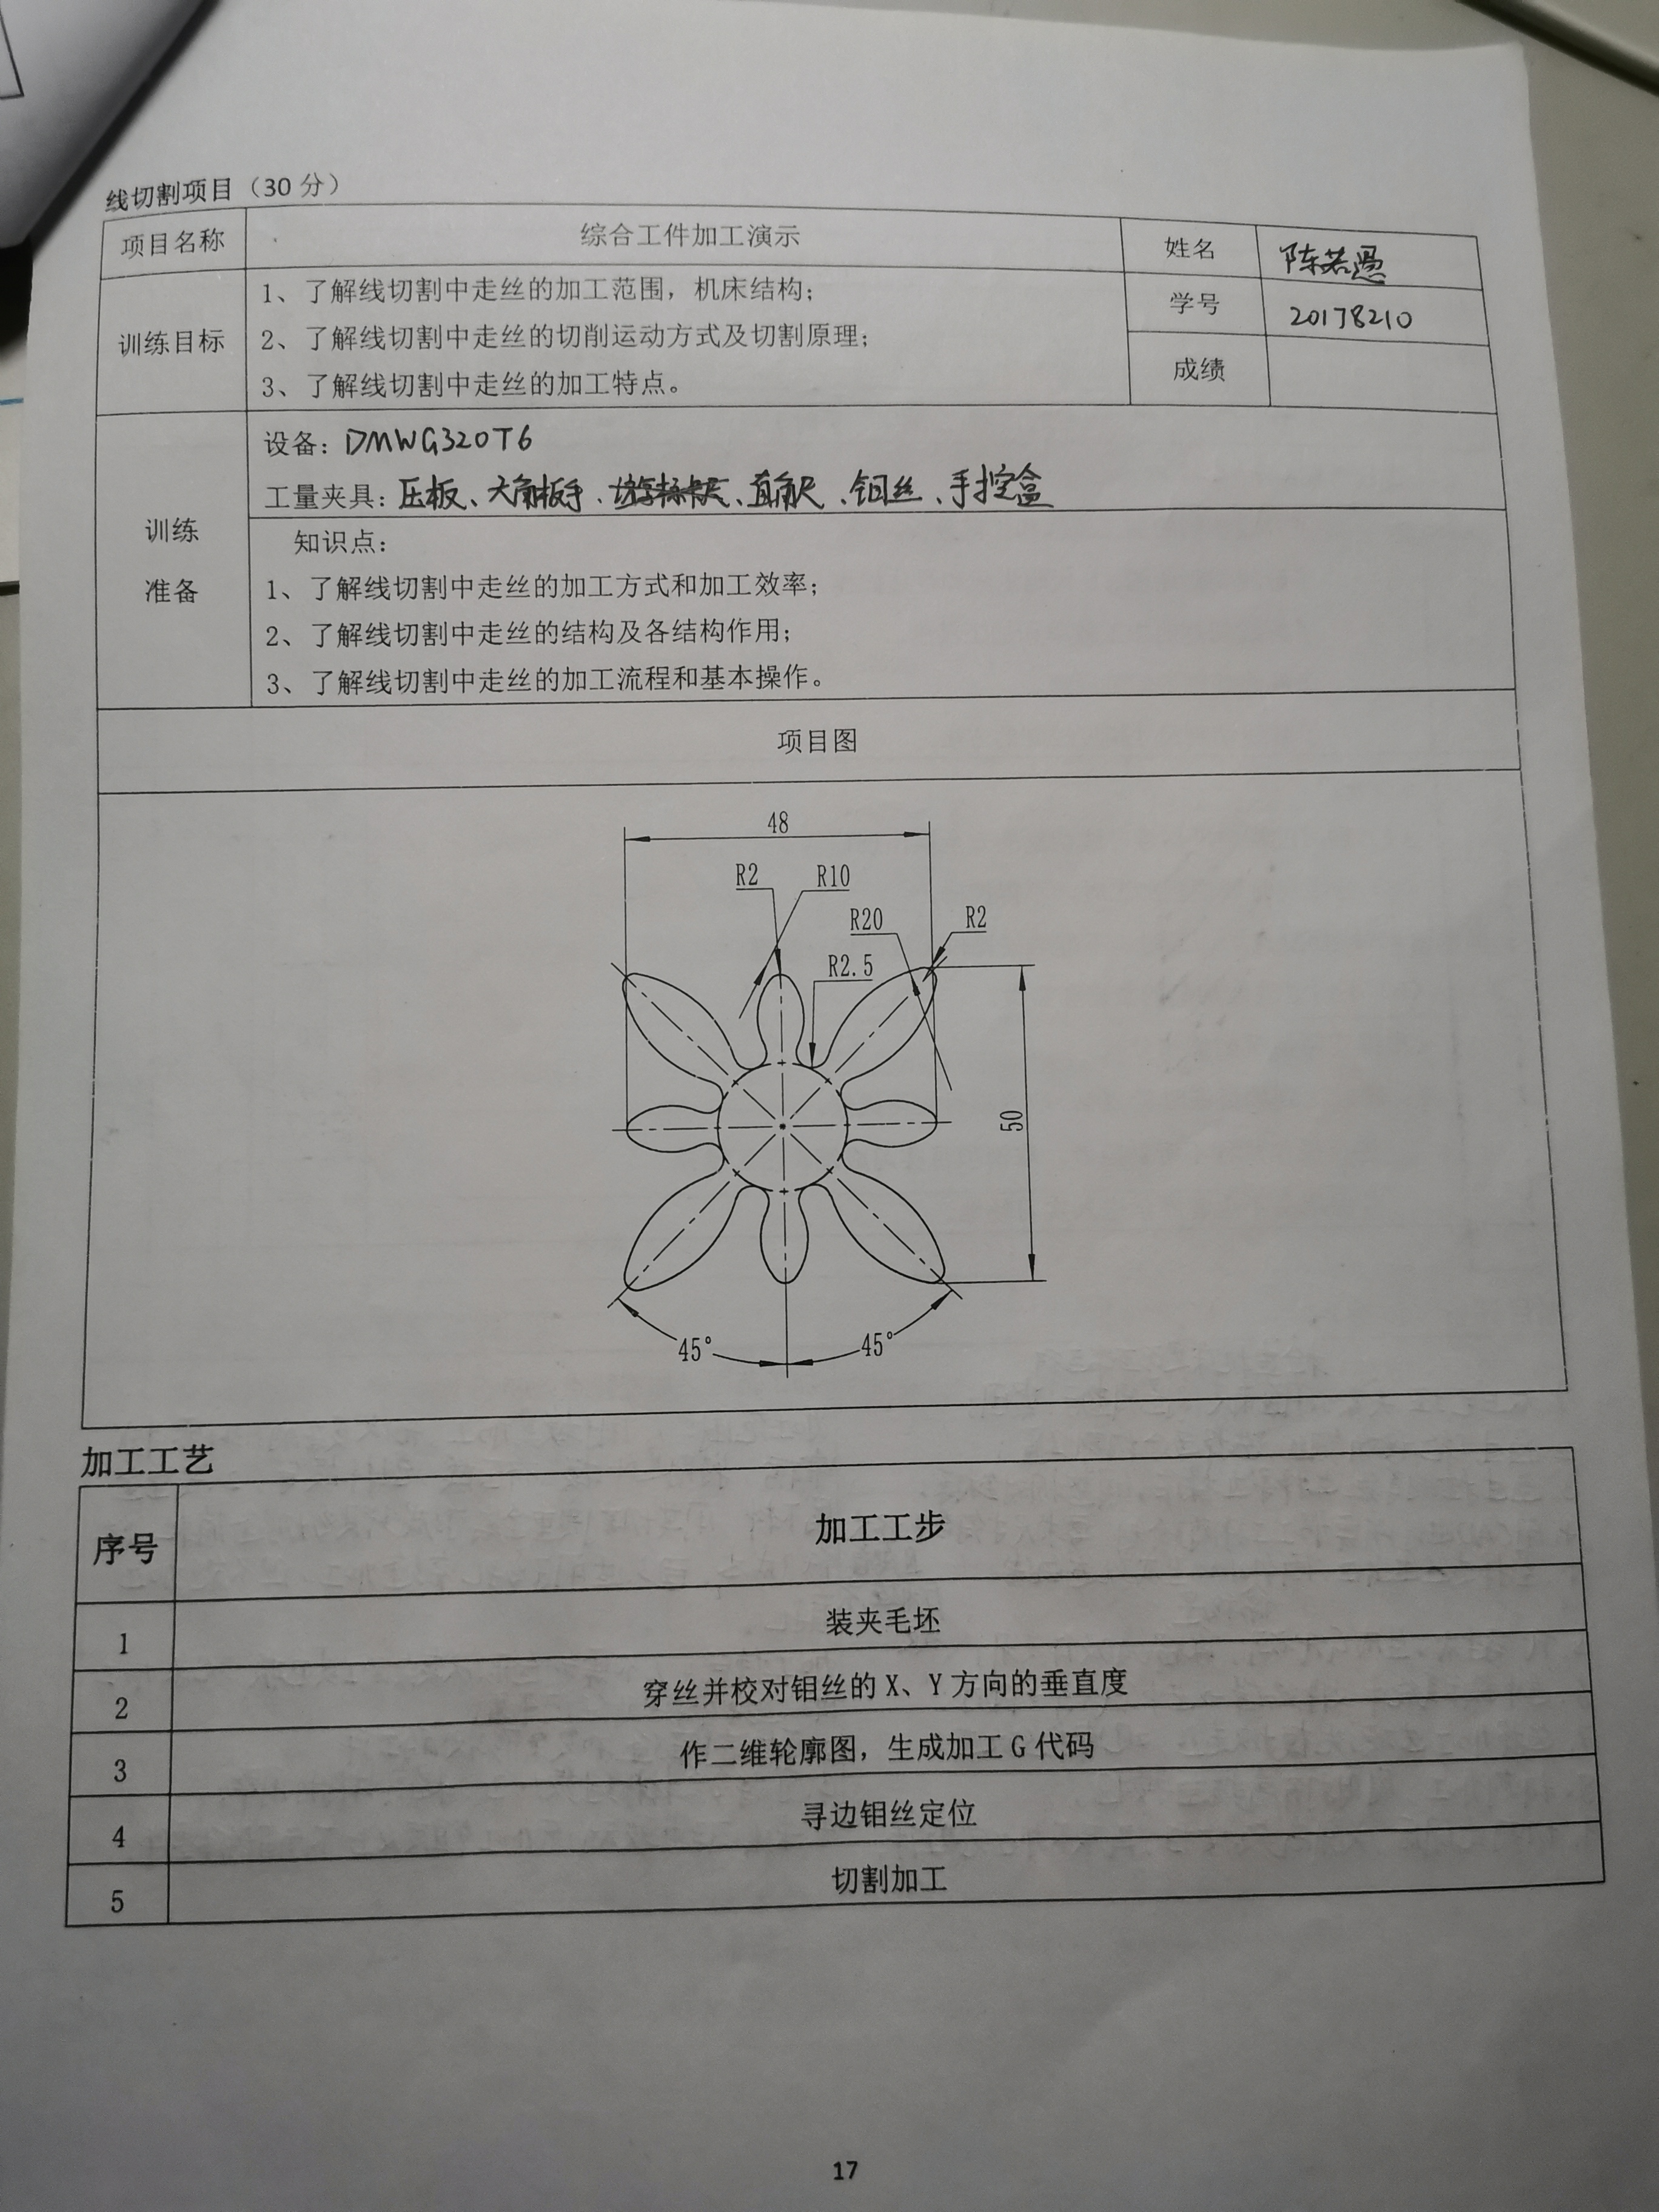 线切割项目（30 分）
项目名称 综合工件加工演示 姓名 陈若愚
训练目标 1、了解线切割中走丝的加工范围，机床结构；
学号 20178210
2、了解线切割中走丝的切削运动方式及切割原理；
成绩
3、了解线切割中走丝的加工特点。
训练
准备
设备：DMWG320T6
工量夹具：压板、六角板手、游标卡尺、直角尺、钼丝、手控盒
知识点：
1、了解线切割中走丝的加工方式和加工效率；
2、了解线切割中走丝的结构及各结构作用；
3、了解线切割中走丝的加工流程和基本操作。
项目图
48
R2 R10
R20 R2
R2.5
50
45° 45°
加工工艺
序号 加工工步
1 装夹毛坯
2 穿丝并校对钼丝的 X、Y 方向的垂直度
3 作二维轮廓图，生成加工 G 代码
4 寻边钼丝定位
5 切割加工
17